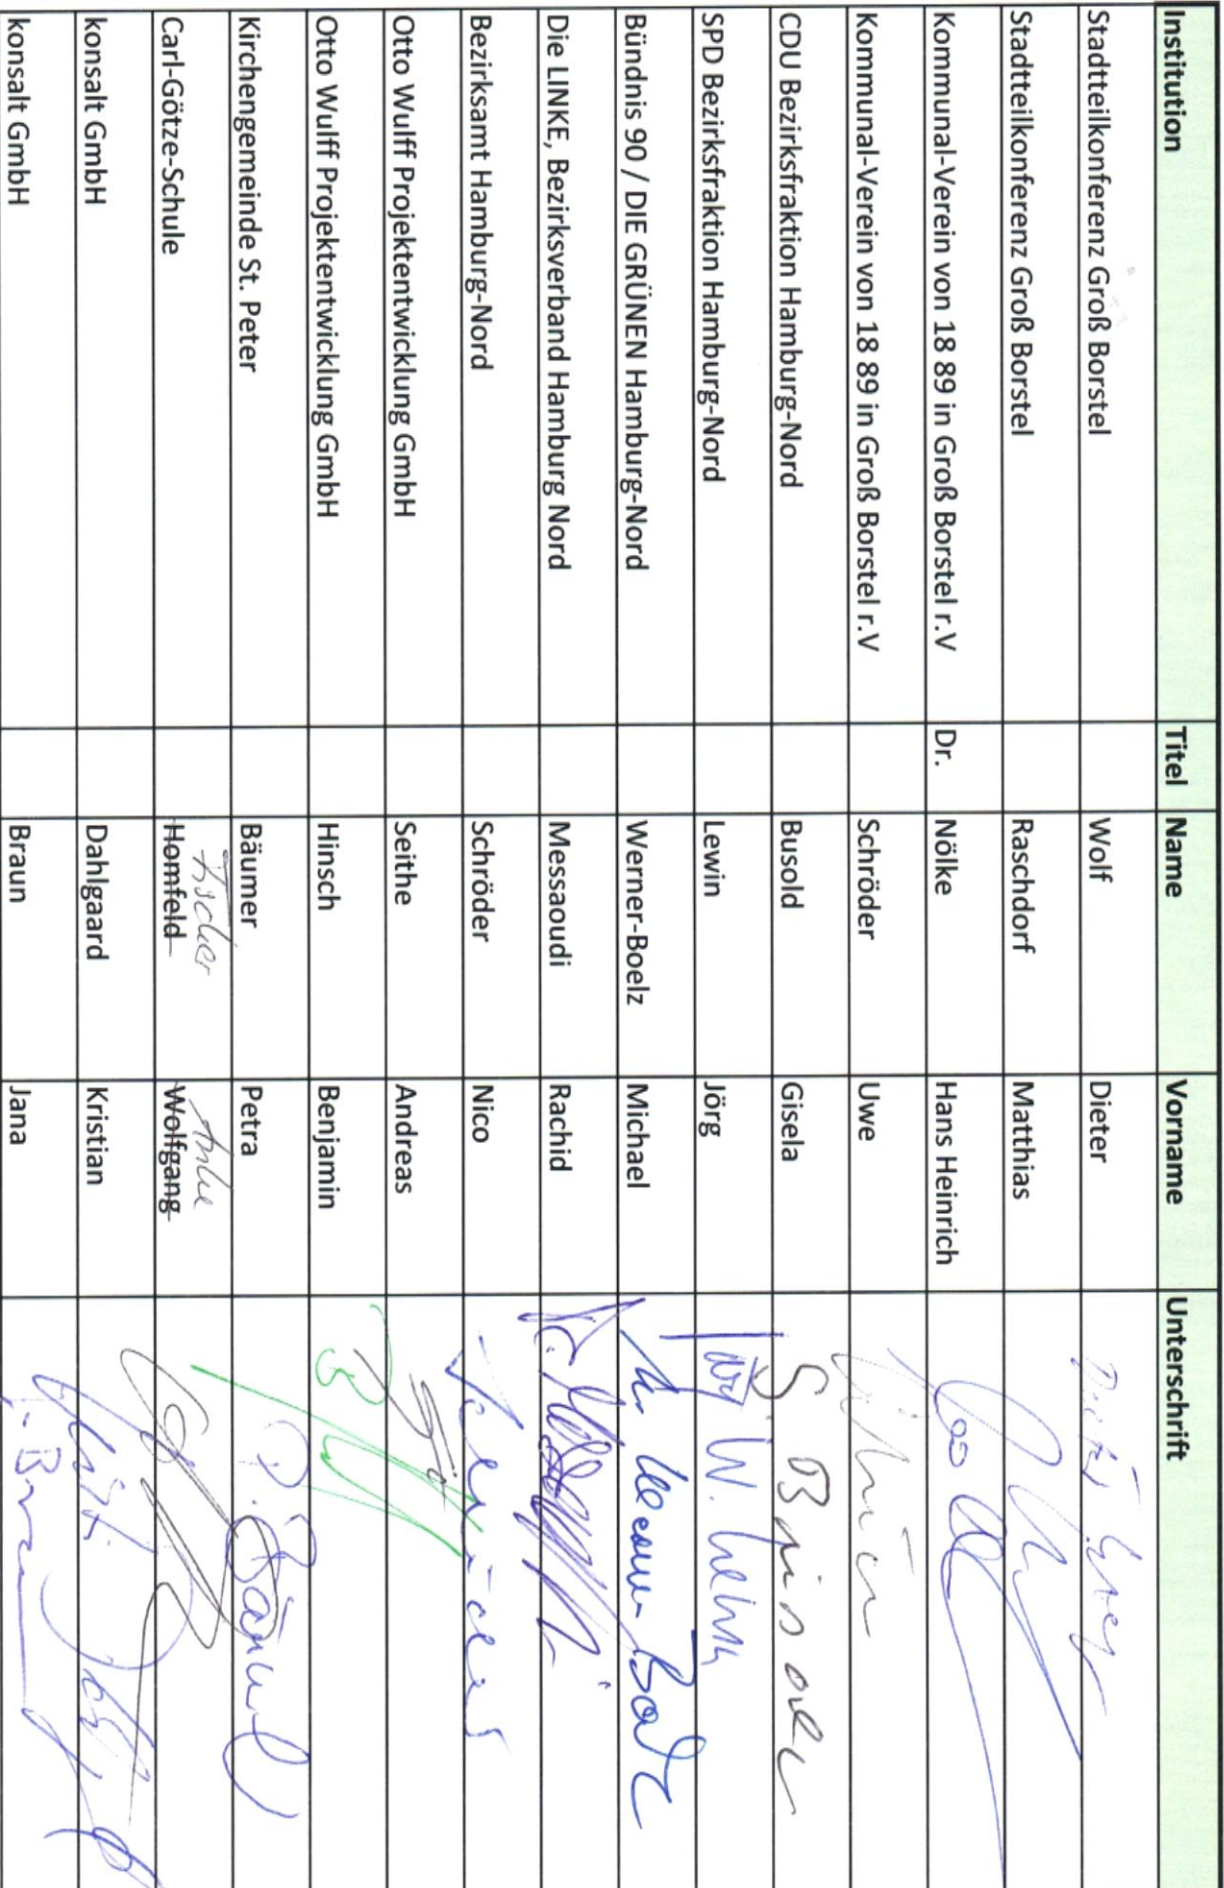 Institution Titel Name Vorname Unterschrift
Stadtteilkonferenz Groß Borstel Wolf Dieter
Stadtteilkonferenz Groß Borstel Raschdorf Matthias
Kommunal-Verein von 18 89 in Groß Borstel r.V Dr. Nölke Hans Heinrich
Kommunal-Verein von 18 89 in Groß Borstel r.V Schröder Uwe
CDU Bezirksfraktion Hamburg-Nord Busold Gisela
SPD Bezirksfraktion Hamburg-Nord Lewin Jörg
Bündnis 90 / DIE GRÜNEN Hamburg-Nord Werner-Boelz Michael
Die LINKE, Bezirksverband Hamburg Nord Messaoudi Rachid
Bezirksamt Hamburg-Nord Schröder Nico
Otto Wulff Projektentwicklung GmbH Seithe Andreas
Otto Wulff Projektentwicklung GmbH Hinsch Benjamin
Kirchengemeinde St. Peter Bäumer Petra P. Bäumer
Fischer Anke
Carl-Götze-Schule Homfeld Wolfgang
konsalt GmbH Dahlgaard Kristian
konsalt GmbH Braun Jana